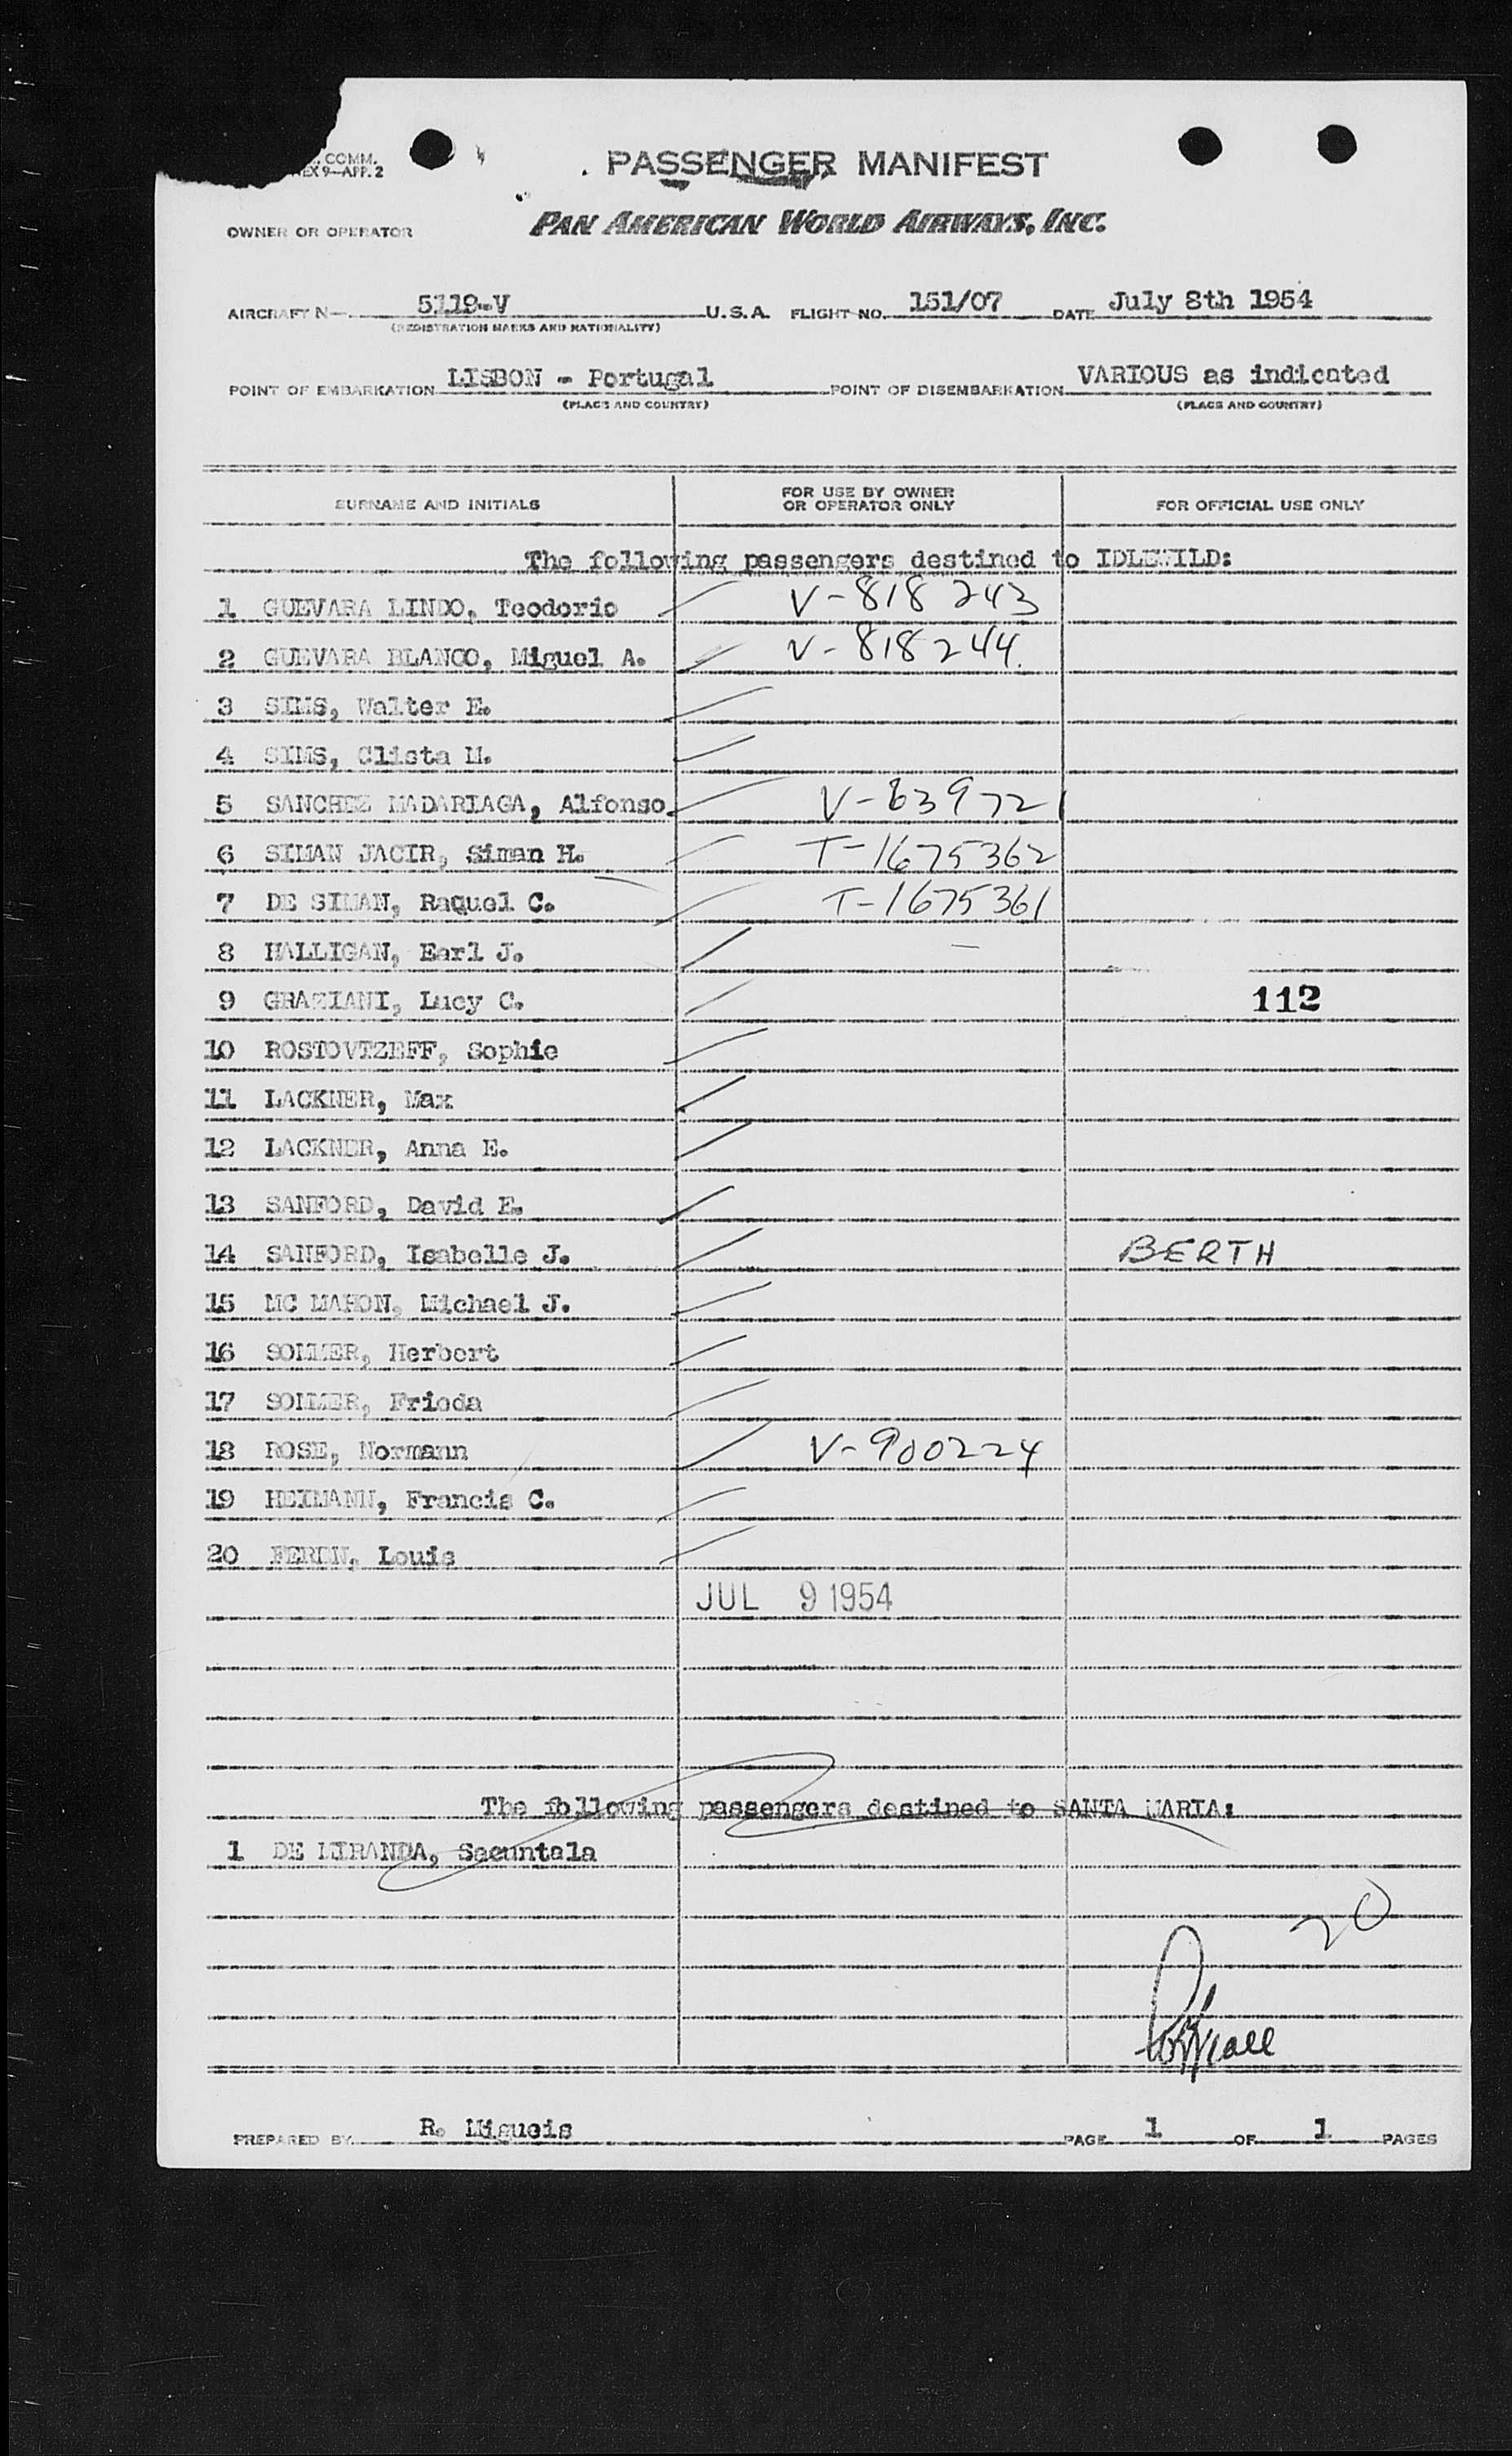 COMM.
EX 9—APP. 2
PASSENGER MANIFEST
OWNER OR OPERATOR PAN AMERICAN WORLD AIRWAYS, INC.
AIRCRAFT N— 5119-V U.S.A. FLIGHT NO. 151/07 DATE July 8th 1954
(REGISTRATION MARKS AND NATIONALITY)
POINT OF EMBARKATION LISBON - Portugal POINT OF DISEMBARKATION VARIOUS as indicated
(PLACE AND COUNTRY) (PLACE AND COUNTRY)
SURNAME AND INITIALS FOR USE BY OWNER OR OPERATOR ONLY FOR OFFICIAL USE ONLY
The following passengers destined to IDLEWILD:
1 GUEVARA LINDO, Teodorio V-818243
2 GUEVARA BLANCO, Miguel A. V-818244
3 SIMS, Walter E.
4 SIMS, Clista M.
5 SANCHEZ MADARIAGA, Alfonso V-639721
6 SIMAN JACIR, Siman H. T-1675362
7 DE SIMAN, Raquel C. T-1675361
8 HALLIGAN, Earl J. —
9 GRAZIANI, Lucy C. 112
10 ROSTOVTZEFF, Sophie
11 LACKNER, Max
12 LACKNER, Anna E.
13 SANFORD, David E.
14 SANFORD, Isabelle J. BERTH
15 MC MAHON, Michael J.
16 SOMMER, Herbert
17 SOMMER, Frieda
18 ROSE, Normann V-900224
19 HEIMANN, Francis C.
20 Louis
JUL 9 1954
The following passengers destined to SANTA MARIA:
1 DE MIRANDA, Sacuntala
20
PREPARED BY R. Migueis PAGE 1 OF 1 PAGES